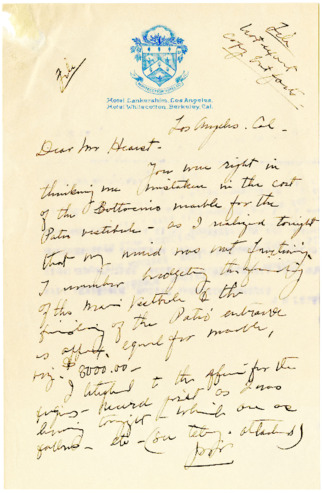 File
File
Hotel Lankershim, Los Angeles.
Hotel Whitecotton, Berkeley, Cal.
Los Angeles, Cal -
Dear Mr Hearst -
You were right in
thinking me mistaken in the cost
of the Bottocino marble for the
Patio vestibule - as I realized tonight
that my mind was not functioning.
I remember budgeting the
of the Main Vestibule & the
finishing of the Patio entrance
as equal for marble,
viz. $8000.00 -
I to the for the
- Record price as I was
leaving - which are as
follows - etc - (See attached)